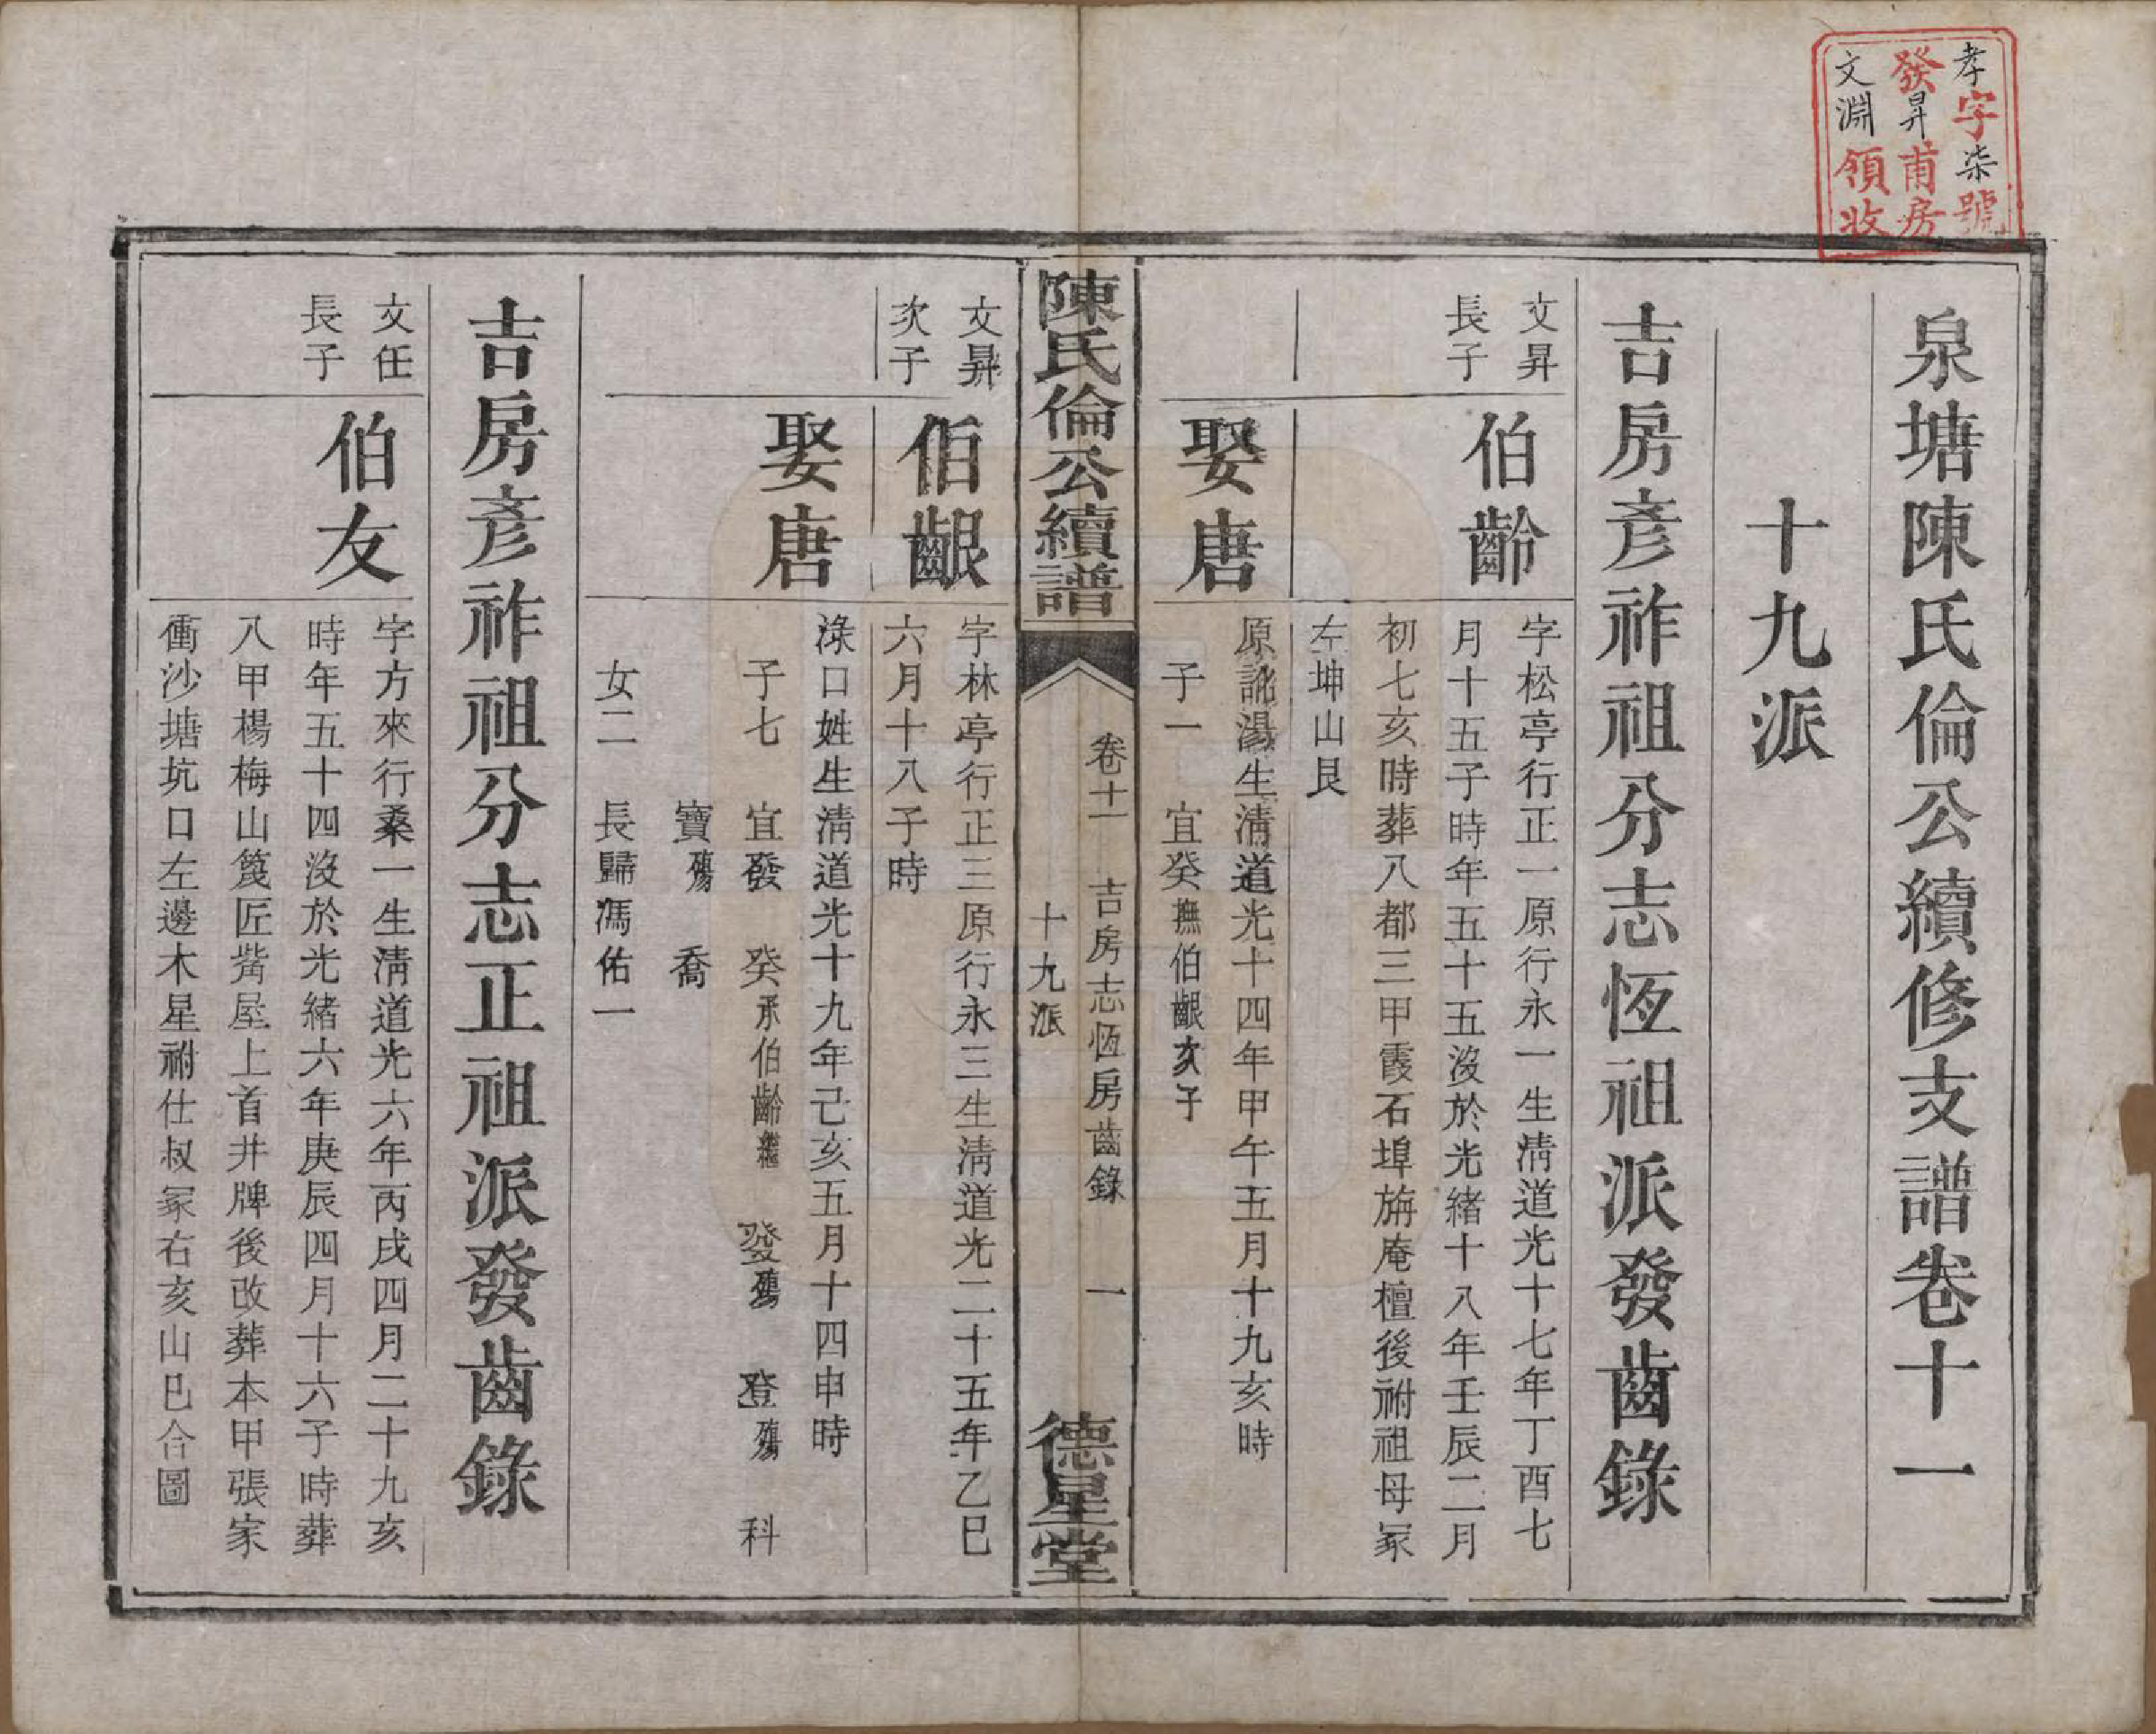 孝字柒號
發昇甫房
文淵領收
泉塘陳氏倫公續修支譜卷十一
十九派
吉房彥祚祖分志恆祖派發齒錄
文昇
長子
伯齡
字松亭行正一原行永一生淸道光十七年丁酉七
月十五子時年五十五沒於光緒十八年壬辰二月
初七亥時葬八都三甲霞石埠旃庵檀後祔祖母冢
左坤山艮
娶唐
原訛湯生淸道光十四年甲午五月十九亥時
子一 宜癸撫伯齦次子
陳氏倫公續譜
卷十一 吉房志恆房齒錄 一
十九派
德星堂
文昇
次子
伯齦
字林亭行正三原行永三生淸道光二十五年乙巳
六月十八子時
娶唐
淥口姓生淸道光十九年己亥五月十四申時
子七 宜發 癸承伯齡繼 發殤 登殤 科
寶殤 喬
女二 長歸馮佑一
吉房彥祚祖分志正祖派發齒錄
文任
長子
伯友
字方來行桑一生淸道光六年丙戌四月二十九亥
時年五十四沒於光緒六年庚辰四月十六子時葬
八甲楊梅山篾匠觜屋上首井牌後改葬本甲張家
衝沙塘坑口左邊木星祔仕叔冢右亥山巳合圖